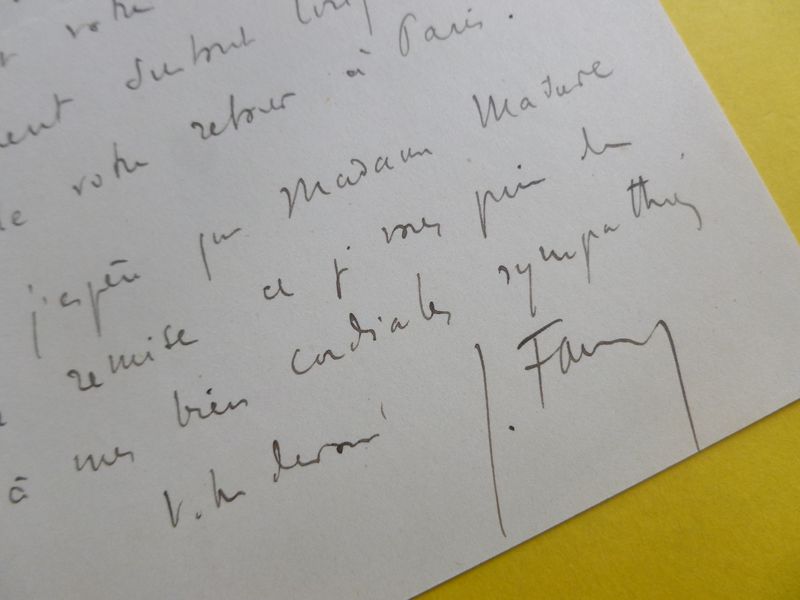 votre
surtout
votre retour à Paris.
j'espère que Madame Madure
remise et je vous prie de
à mes bien cordiales sympathies
Votre dévoué J. Fav